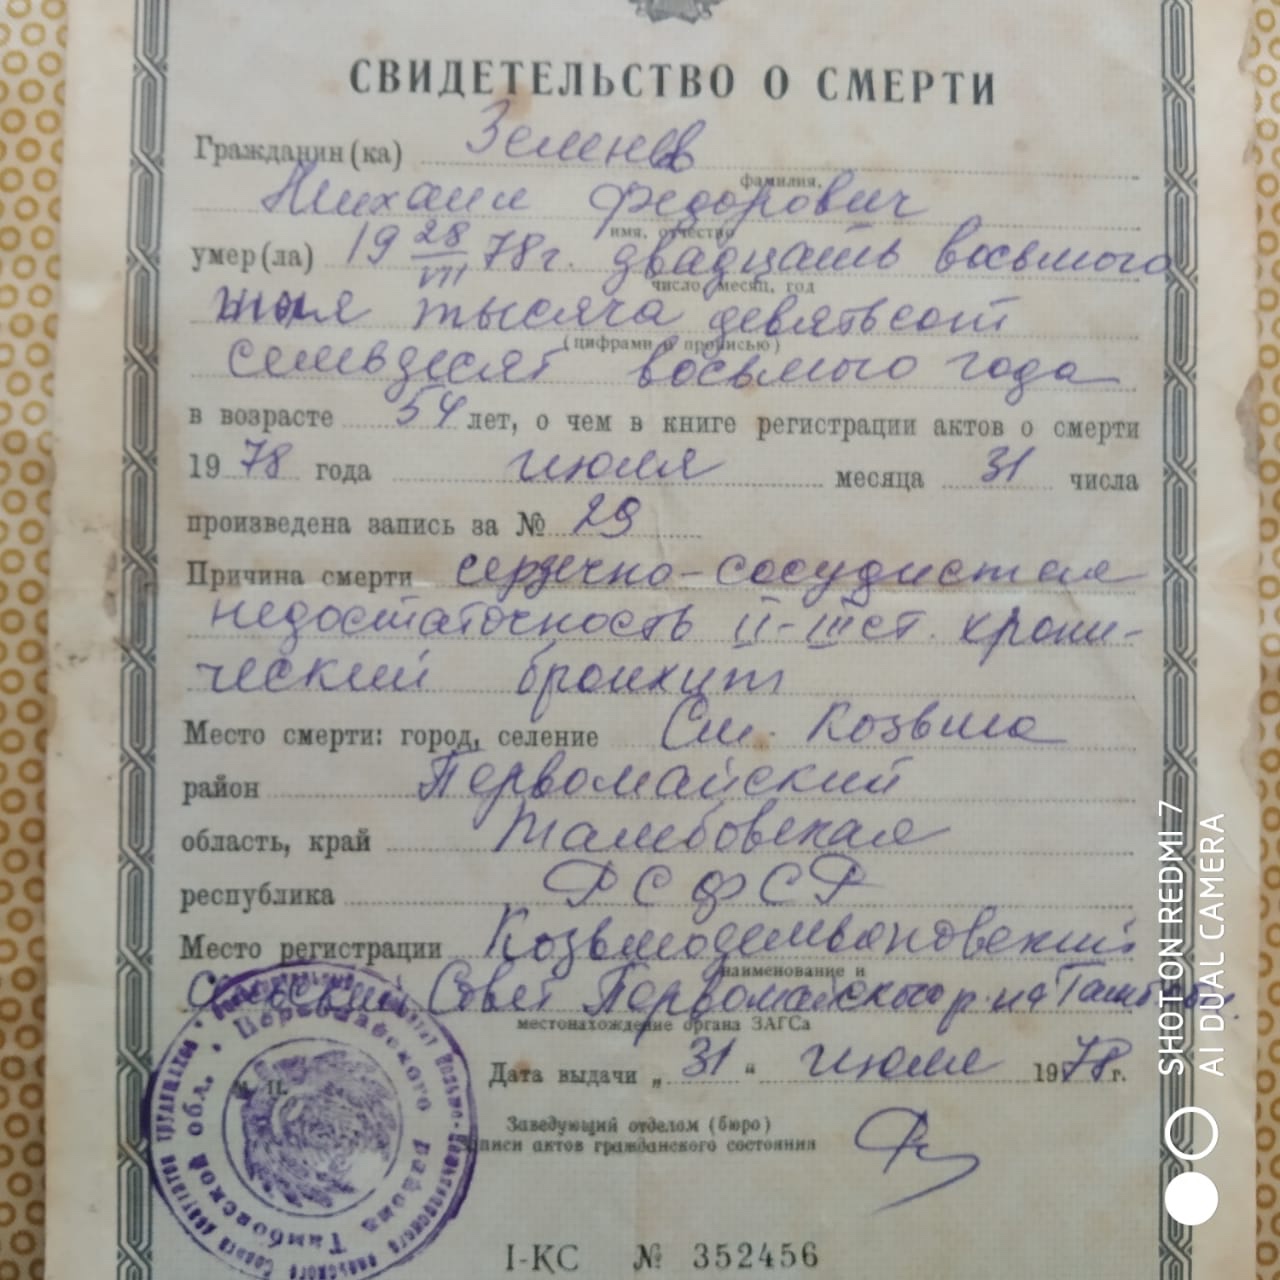 СВИДЕТЕЛЬСТВО О СМЕРТИ
Гражданин (ка) Зеленев
фамилия,
Михаил Федорович
имя, отчество
умер(ла) 19 28/VII 78г. двадцать восьмого
число, месяц, год
июля тысяча девятьсот
(цифрами и прописью)
семьдесят восьмого года
в возрасте 54 лет, о чем в книге регистрации актов о смерти
19 78 года июля месяца 31 числа
произведена запись за № 29
Причина смерти сердечно-сосудистая
недостаточность II-III ст. хрони-
ческий бронхит
Место смерти: город, селение См. Козьма
район Первомайский
область, край Тамбовская
республика РСФСР
Место регистрации Козьмодемьяновский
наименование и
сельский Совет Первомайского р-на
местонахождение органа ЗАГСа
Дата выдачи „ 31 “ июля 1978 г.
М. П.
Заведующий отделом (бюро)
записи актов гражданского состояния
I-КС № 352456
Первомайского района Тамбовской обл.
SHOT ON REDMI 7
AI DUAL CAMERA